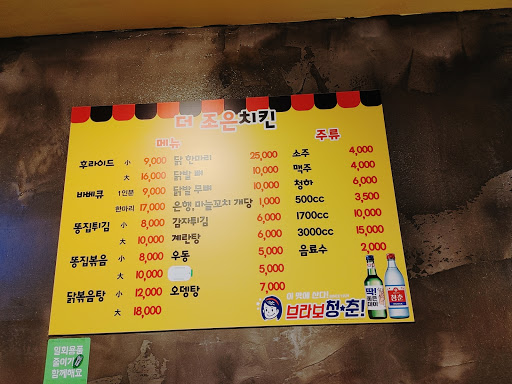 더 조은치킨
메뉴
후라이드 소 9,000
대 16,000
바베큐 1인분 9,000
한마리 17,000
똥집튀김 소 8,000
대 10,000
똥집볶음 소 8,000
대 10,000
닭볶음탕 소 12,000
대 18,000
닭 한마리 25,000
닭발 뼈 10,000
닭발 무뼈 10,000
은행, 마늘꼬치 개당 1,000
감자튀김 6,000
계란탕 6,000
우동 5,000
5,000
오뎅탕 7,000
주류
소주 4,000
맥주 4,000
청하 6,000
500cc 3,500
1700cc 10,000
3000cc 15,000
음료수 2,000
이 맛에 산다!
브라보청춘!
딱!
좋은
데이
청춘
일회용품
줄여가게
함께해요